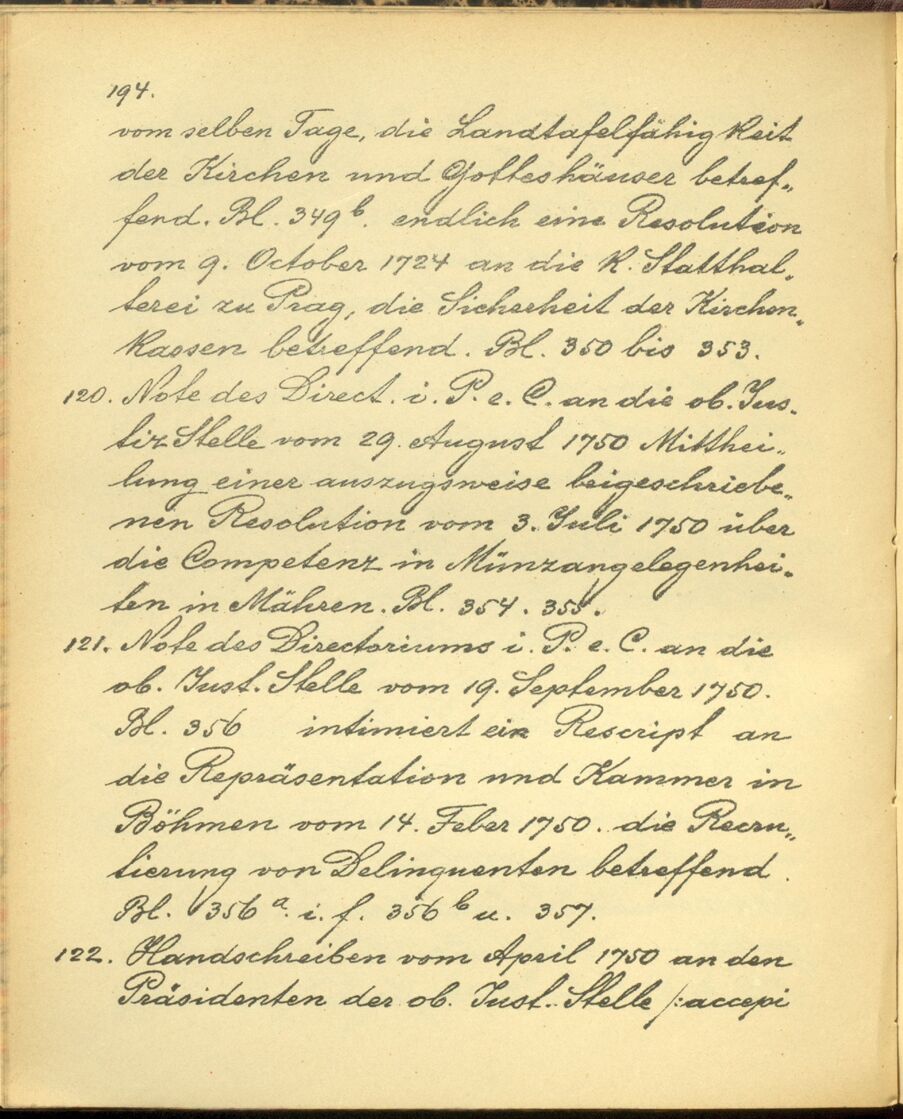 194.
vom selben Tage, die Landtafelfähigkeit
der Kirchen und Gotteshäuser betref„
fend. Bl. 349 b. endlich eine Resolution
vom 9. October 1724 an die K. Statthal„
terei zu Prag, die Sicherheit der Kirchen„
kassen betreffend. Bl. 350 bis 353.
120. Note des Direct. i. P. e. C. an die ob. Jus„
tiz Stelle vom 29. August 1750 Mitthei„
lung einer auszugsweise beigeschriebe„
nen Resolution vom 3. Juli 1750 über
die Competenz in Münzangelegenhei„
ten in Mähren. Bl. 354. 355.
121. Note des Directoriums i. P. e. C. an die
ob. Just. Stelle vom 19. September 1750.
Bl. 356 intimiert ein Rescript an
die Repräsentation und Kammer in
Böhmen vom 14. Feber 1750. die Recru„
tierung von Delinquenten betreffend.
Bl. 356 a. i. f. 356 b u. 357.
122. Handschreiben vom April 1750 an den
Präsidenten der ob. Just. Stelle /: accepi